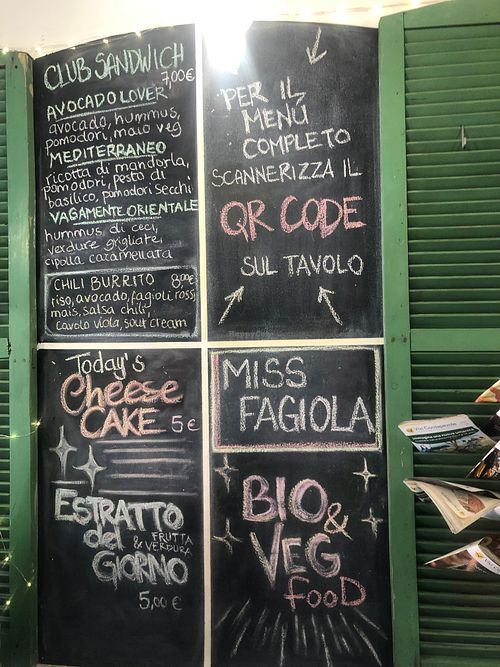 CLUB SANDWICH
7,00€
AVOCADO LOVER
avocado, hummus,
pomodori, maio veg
MEDITERRANEO
ricotta di mandorla,
pomodori, pesto di
basilico, pomodori secchi
VAGAMENTE ORIENTALE
hummus di ceci,
verdure grigliate,
cipolla caramellata
CHILI BURRITO 8,00€
riso, avocado, fagioli rossi
mais, salsa chili,
cavolo viola, sour cream
PER IL
MENÚ
COMPLETO
SCANNERIZZA IL
QR CODE
SUL TAVOLO
Today's
Cheese
CAKE 5€
ESTRATTO
del FRUTTA
& VERDURA
GIORNO
5,00 €
MISS
FAGIOLA
BIO &
VEG
FOOD